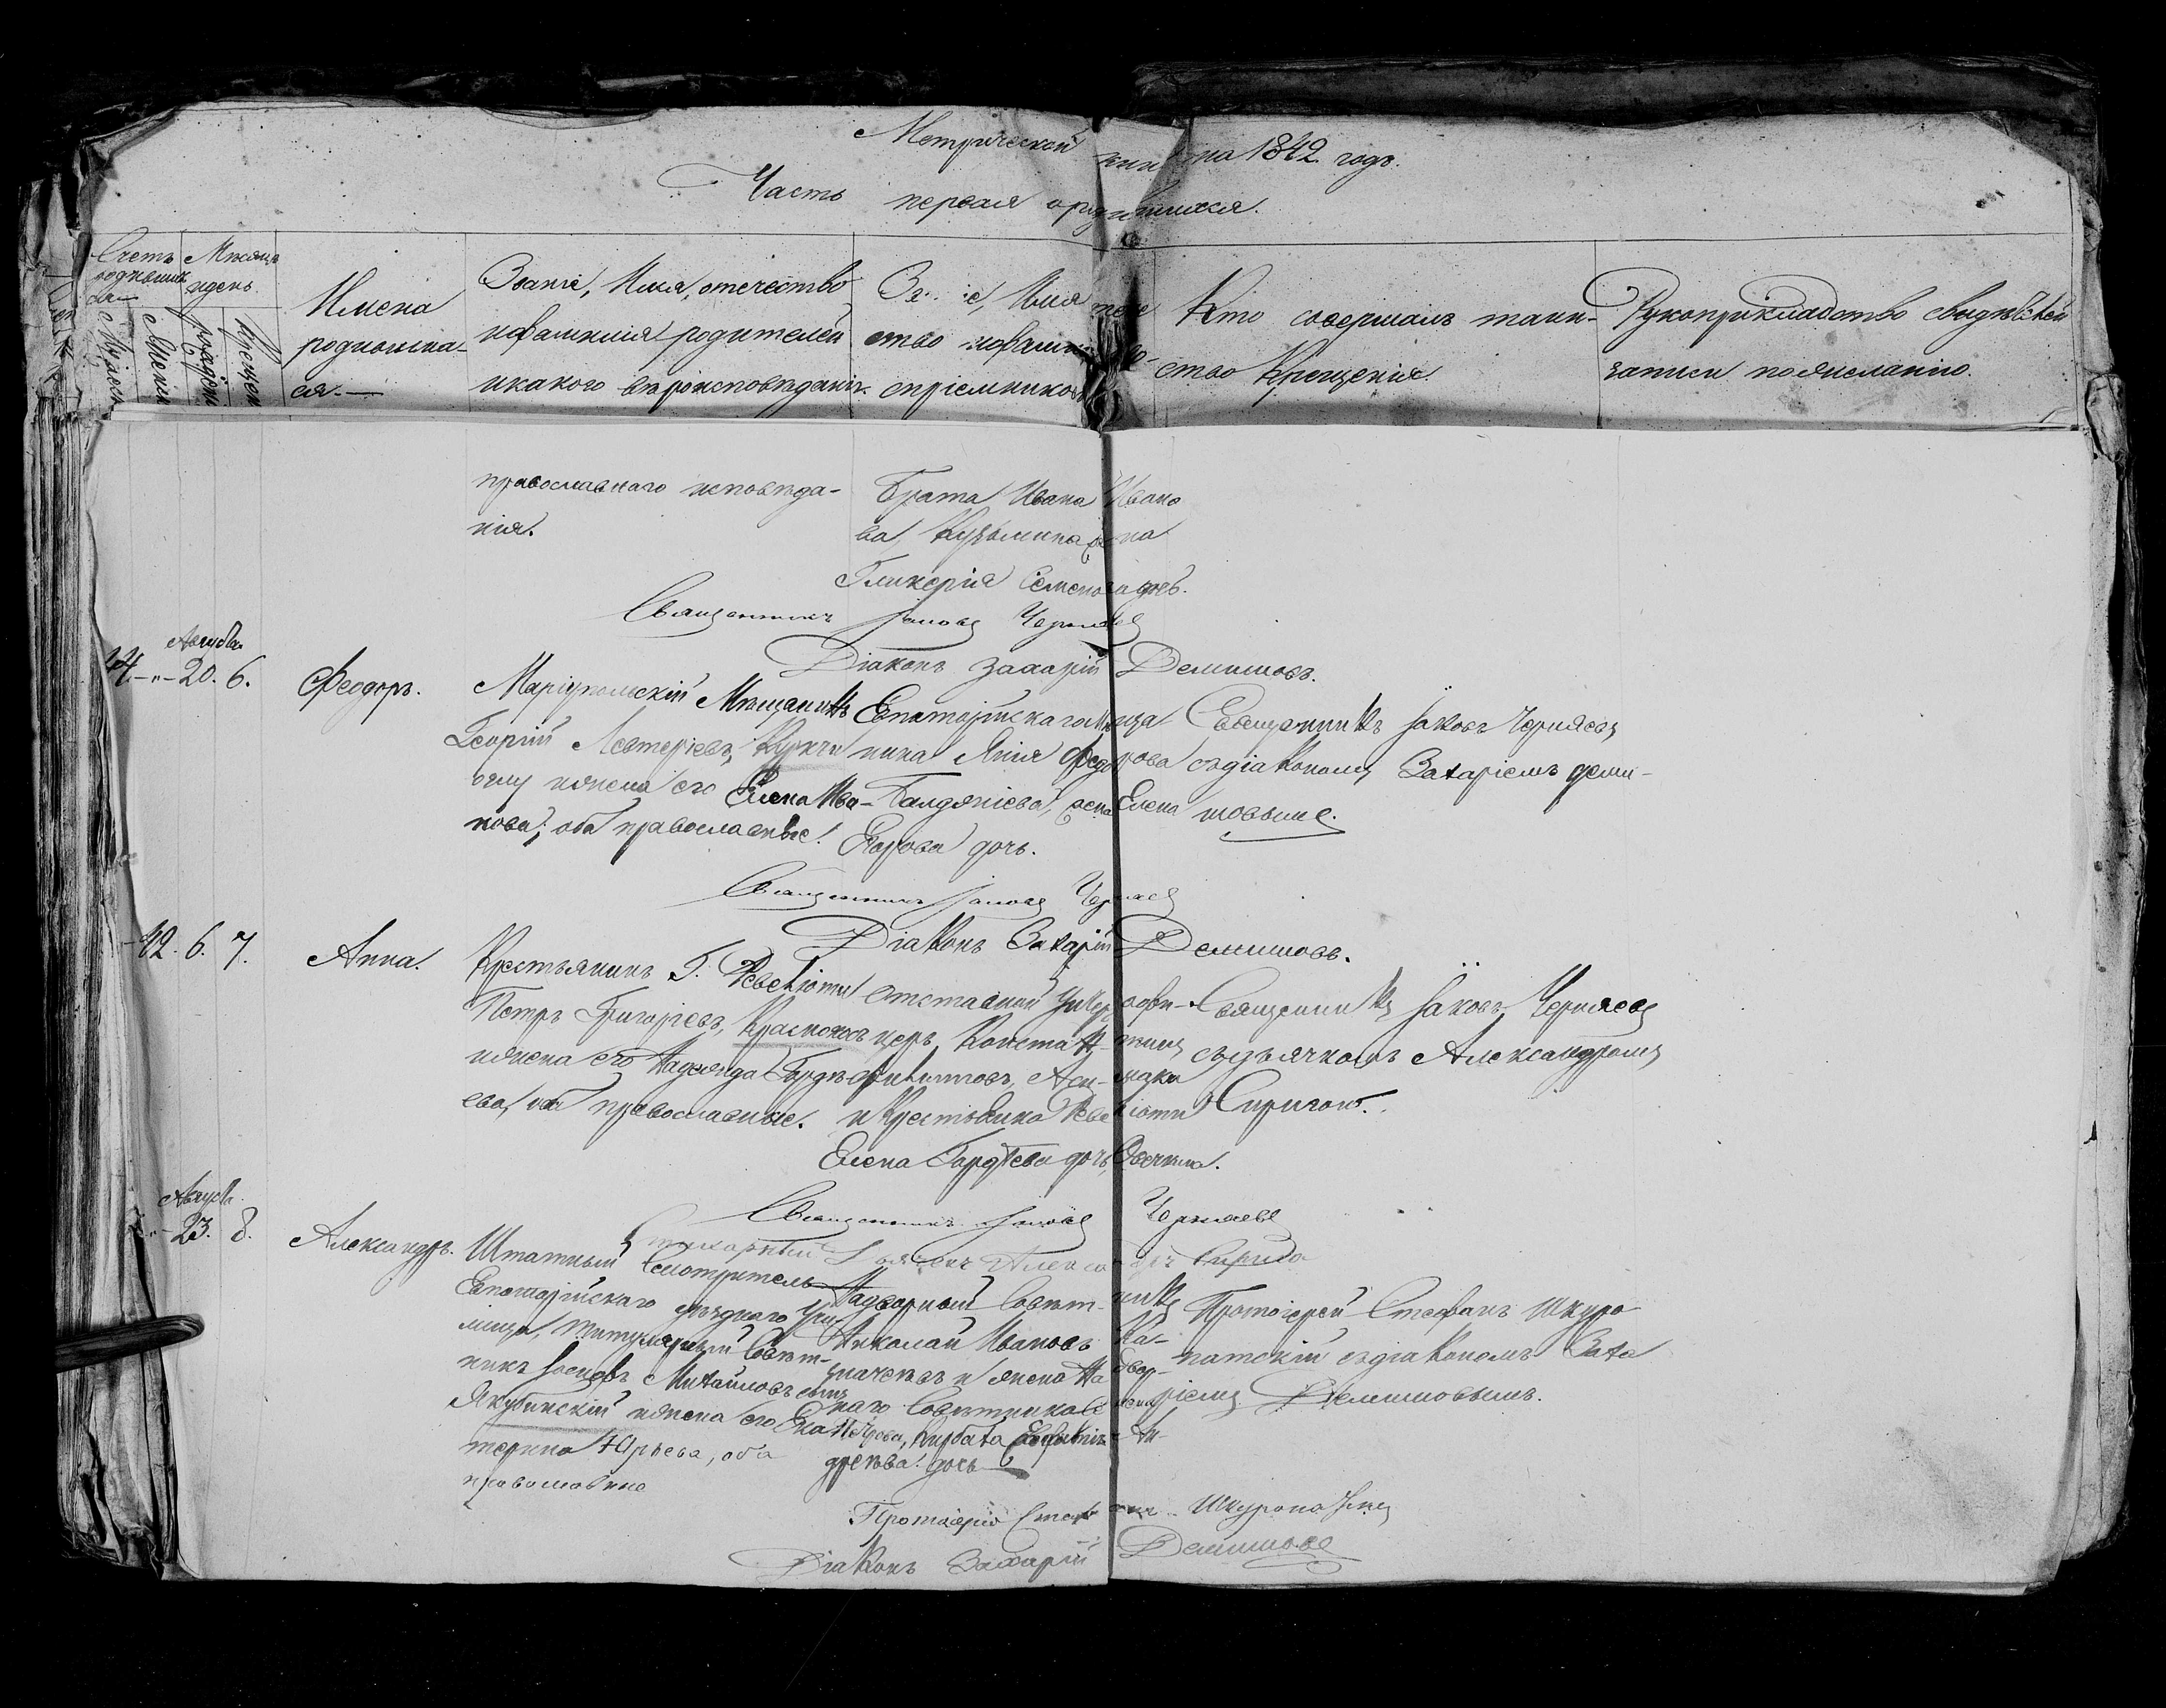 Метрической книги на 1842 годъ.
Часть первая о родившихся.
Счетъ родившихся
Мѣсяцъ и день.
Мужеск
Женск
рожден
Крещен
Имена
родившиха-
ся.—
Званіе, Имя, отчество
и фамилія родителей
и какого вѣроисповѣданія.
Званіе, Имя отче
ство и фамилія
воспріемниковъ
Кто совершалъ таин-
ство Крещенія.
Рукоприкладство свидѣтелей
записи по желанію.
православнаго исповѣда-
нія.
Брата Ивана Ивано
ва, Кузьмина жена
Гликерія Семенова дочь.
Священникъ Іаковъ Черняевъ
Діаконъ Захарій Демишовъ.
Августа
44.-"-20. 6.
Феодоръ.
Маріупольскій Мѣщанинъ
Георгій Левтеріевъ, Куркчи
оглу и жена его Елена Ива-
нова; оба православные.
Евпаторійскаго Мѣща
нина Яній Федорова
Балджіева, жена Елена
Егорова дочь.
Священникъ Іаковъ Черняевъ
съ діакономъ Захаріемъ Деми-
шовымъ.
Священникъ Іаковъ Черняевъ
Діаконъ Захарій Демишовъ.
-42. 6. 7.
Анна.
Крестьянинъ Г. Ревеліоти
Петръ Григоріевъ, Красноносъ
и жена его Надежда Гордѣ-
ева, оба православные.
отставной Унтеръ офи-
церъ, Константинъ
Филиповъ,
и Крестьянка Ревеліоти
Елена Гордѣева дочь, Овечкина.
Священникъ Іаковъ Черняевъ
съ дьячкомъ Александромъ
Сиригою.
Священникъ Іаковъ Черняевъ
Стихарный дьячекъ Александръ Сирига
Августа
-"-23. 8.
Александръ.
Штатный Смотритель
Евпаторійскаго уѣзднаго Учи-
лища, титулярный Совѣт-
никъ Іосифъ Михайловъ сынъ
Якубинскій и жена его Ека-
терина Юрьева, оба
православные
Надворный Совѣтникъ
Николай Ивановъ Ка-
значеевъ и жена Надвор-
наго Совѣтника
Ан-
дреева дочь
Протоіерей Стефанъ Шкуро-
патскій съ діакономъ Заха
ріемъ Демишовымъ.
Протоіерей Стефанъ Шкуропатскій
Діаконъ Захарій Демишовъ